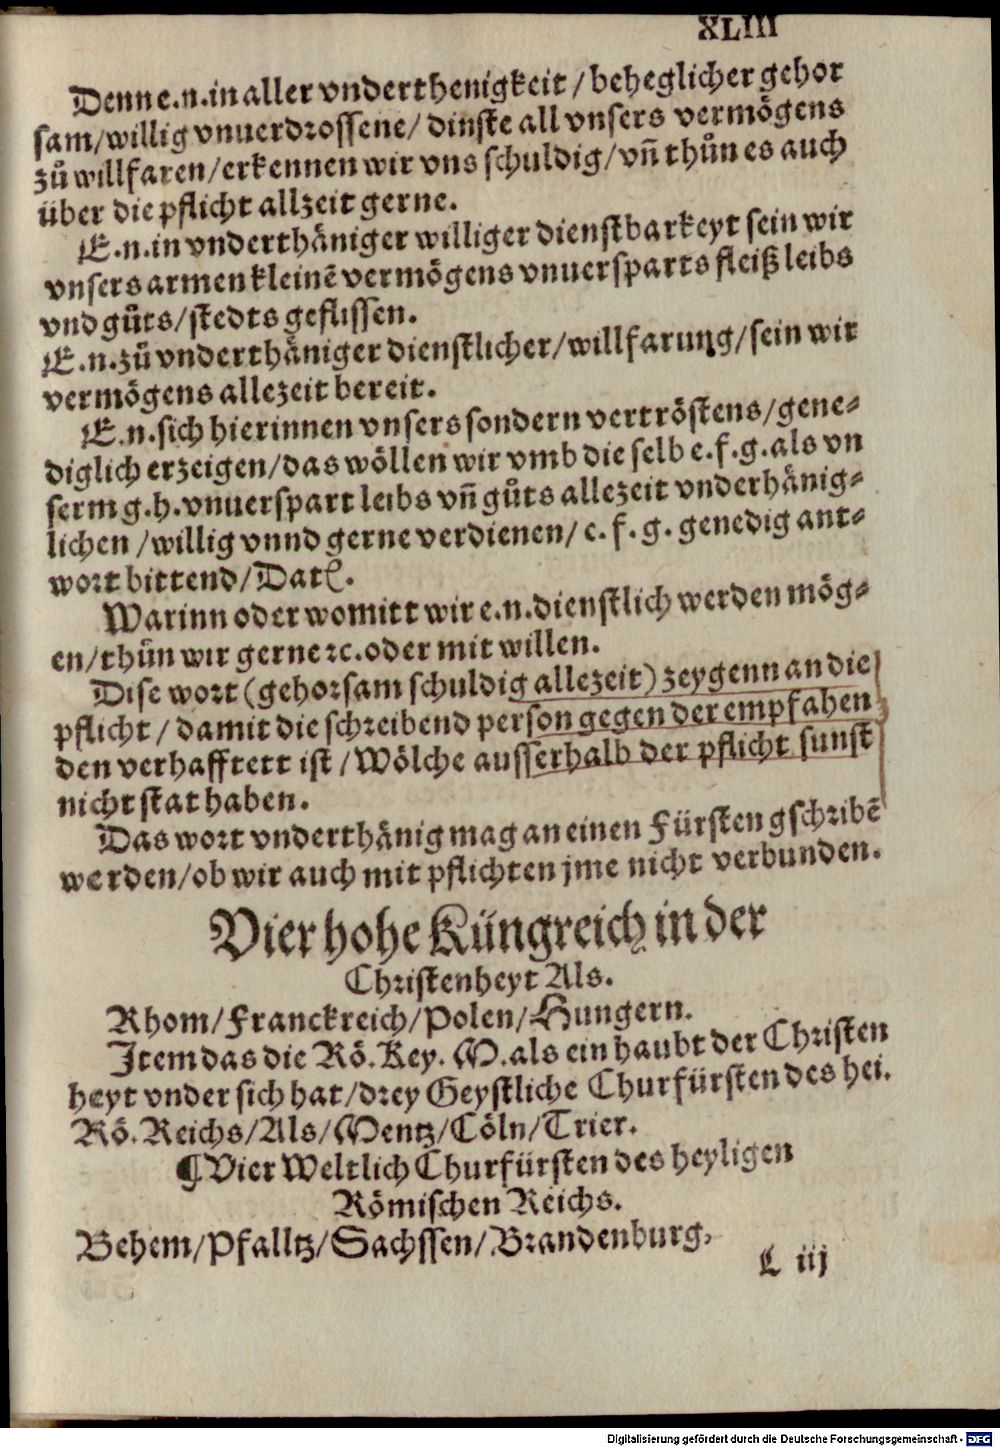 XLIII
Denn e.n. in aller vnderthenigkeit / beheglicher gehor
sam/willig vnuerdrossene/ dinste all vnsers vermögens
zů willfaren/erkennen wir vns schuldig/vñ thůn es auch
über die pflicht allzeit gerne.
E.n. in vnderthäniger williger dienstbarkeyt sein wir
vnsers armen kleinẽ vermögens vnuersparts fleiß leibs
vnd gůts/stedts geflissen.
E.n. zů vnderthäniger dienstlicher/willfarung/sein wir
vermögens allezeit bereit.
E.n. sich hierinnen vnsers sondern vertröstens/gene⸗
diglich erzeigen/das wöllen wir vmb die selb e.f.g. als vn
serm g.h. vnuerspart leibs vñ gůts allezeit vnderhänig⸗
lichen /willig vnnd gerne verdienen/ e. f. g. genedig ant⸗
wort bittend/Datꝭ.
Warinn oder womitt wir e.n. dienstlich werden mög⸗
en/thůn wir gerne ꝛc. oder mit willen.
Dise wort (gehorsam schuldig allezeit) zeygenn an die
pflicht / damit die schreibend person gegen der empfahen
den verhafftett ist /Wölche ausserhalb der pflicht sunst
nicht stat haben.
Das wort vnderthänig mag an einen Fürsten gschribẽ
werden/ob wir auch mit pflichten jme nicht verbunden.
Vier hohe Küngreich in der
Christenheyt Als.
Rhom/Franckreich/Polen/Hungern.
Item das die Rö. Key. M. als ein haubt der Christen
heyt vnder sich hat/drey Geystliche Churfürsten des hei.
Rö. Reichs/Als/Mentz/Cöln/Trier.
¶ Vier Weltlich Churfürsten des heyligen
Römischen Reichs.
Behem/Pfalltz/Sachssen/Brandenburg.
L iij
Digitalisierung gefördert durch die Deutsche Forschungsgemeinschaft - DFG